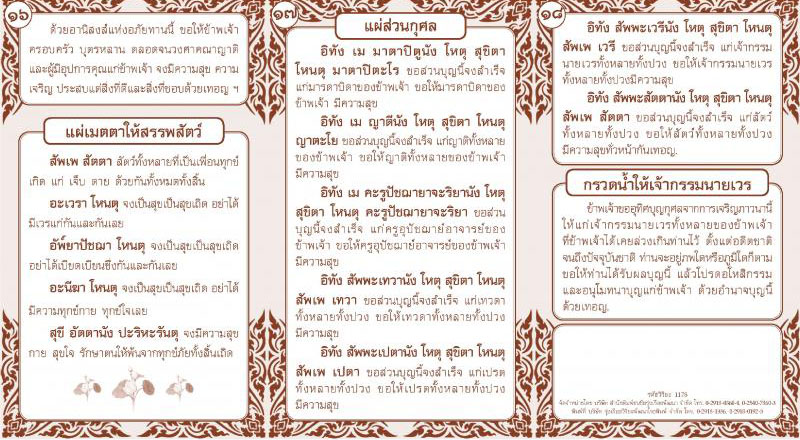 ๑๖
ด้วยอานิสงส์แห่งอภัยทานนี้ ขอให้ข้าพเจ้า
ครอบครัว บุตรหลาน ตลอดจนวงศาคณาญาติ
และผู้มีอุปการคุณแก่ข้าพเจ้า จงมีความสุข ความ
เจริญ ประสบแต่สิ่งที่ดีและสิ่งที่ชอบด้วยเทอญ ฯ
แผ่เมตตาให้สรรพสัตว์
สัพเพ สัตตา สัตว์ทั้งหลายที่เป็นเพื่อนทุกข์
เกิด แก่ เจ็บ ตาย ด้วยกันทั้งหมดทั้งสิ้น
อะเวรา โหนตุ จงเป็นสุขเป็นสุขเถิด อย่าได้
มีเวรแก่กันและกันเลย
อัพ๎ยาปัชฌา โหนตุ จงเป็นสุขเป็นสุขเถิด
อย่าได้เบียดเบียนซึ่งกันและกันเลย
อะนีฆา โหนตุ จงเป็นสุขเป็นสุขเถิด อย่าได้
มีความทุกข์กาย ทุกข์ใจเลย
สุขี อัตตานัง ปะริหะรันตุ จงมีความสุข
กาย สุขใจ รักษาตนให้พ้นจากทุกข์ภัยทั้งสิ้นเถิด
๑๗
แผ่ส่วนกุศล
อิทัง เม มาตาปิตูนัง โหตุ สุขิตา
โหนตุ มาตาปิตะโร ขอส่วนบุญนี้จงสำเร็จ
แก่มารดาบิดาของข้าพเจ้า ขอให้มารดาบิดาของ
ข้าพเจ้า มีความสุข
อิทัง เม ญาตีนัง โหตุ สุขิตา โหนตุ
ญาตะโย ขอส่วนบุญนี้จงสำเร็จ แก่ญาติทั้งหลาย
ของข้าพเจ้า ขอให้ญาติทั้งหลายของข้าพเจ้า
มีความสุข
อิทัง เม คะรุปัชฌายาจะริยานัง โหตุ
สุขิตา โหนตุ คะรุปัชฌายาจะริยา ขอส่วน
บุญนี้จงสำเร็จ แก่ครูอุปัชฌาย์อาจารย์ของ
ข้าพเจ้า ขอให้ครูอุปัชฌาย์อาจารย์ของข้าพเจ้า
มีความสุข
อิทัง สัพพะเทวานัง โหตุ สุขิตา โหนตุ
สัพเพ เทวา ขอส่วนบุญนี้จงสำเร็จ แก่เทวดา
ทั้งหลายทั้งปวง ขอให้เทวดาทั้งหลายทั้งปวง
มีความสุข
อิทัง สัพพะเปตานัง โหตุ สุขิตา โหนตุ
สัพเพ เปตา ขอส่วนบุญนี้จงสำเร็จ แก่เปรต
ทั้งหลายทั้งปวง ขอให้เปรตทั้งหลายทั้งปวง
มีความสุข
๑๘
อิทัง สัพพะเวรีนัง โหตุ สุขิตา โหนตุ
สัพเพ เวรี ขอส่วนบุญนี้จงสำเร็จ แก่เจ้ากรรม
นายเวรทั้งหลายทั้งปวง ขอให้เจ้ากรรมนายเวร
ทั้งหลายทั้งปวงมีความสุข
อิทัง สัพพะสัตตานัง โหตุ สุขิตา โหนตุ
สัพเพ สัตตา ขอส่วนบุญนี้จงสำเร็จ แก่สัตว์
ทั้งหลายทั้งปวง ขอให้สัตว์ทั้งหลายทั้งปวง
มีความสุขทั่วหน้ากันเทอญ.
กรวดน้ำให้เจ้ากรรมนายเวร
ข้าพเจ้าขออุทิศบุญกุศลจากการเจริญภาวนานี้
ให้แก่เจ้ากรรมนายเวรทั้งหลายของข้าพเจ้า
ที่ข้าพเจ้าได้เคยล่วงเกินท่านไว้ ตั้งแต่อดีตชาติ
จนถึงปัจจุบันชาติ ท่านจะอยู่ภพใดหรือภูมิใดก็ตาม
ขอให้ท่านได้รับผลบุญนี้ แล้วโปรดอโหสิกรรม
และอนุโมทนาบุญแก่ข้าพเจ้า ด้วยอำนาจบุญนี้
ด้วยเทอญ.